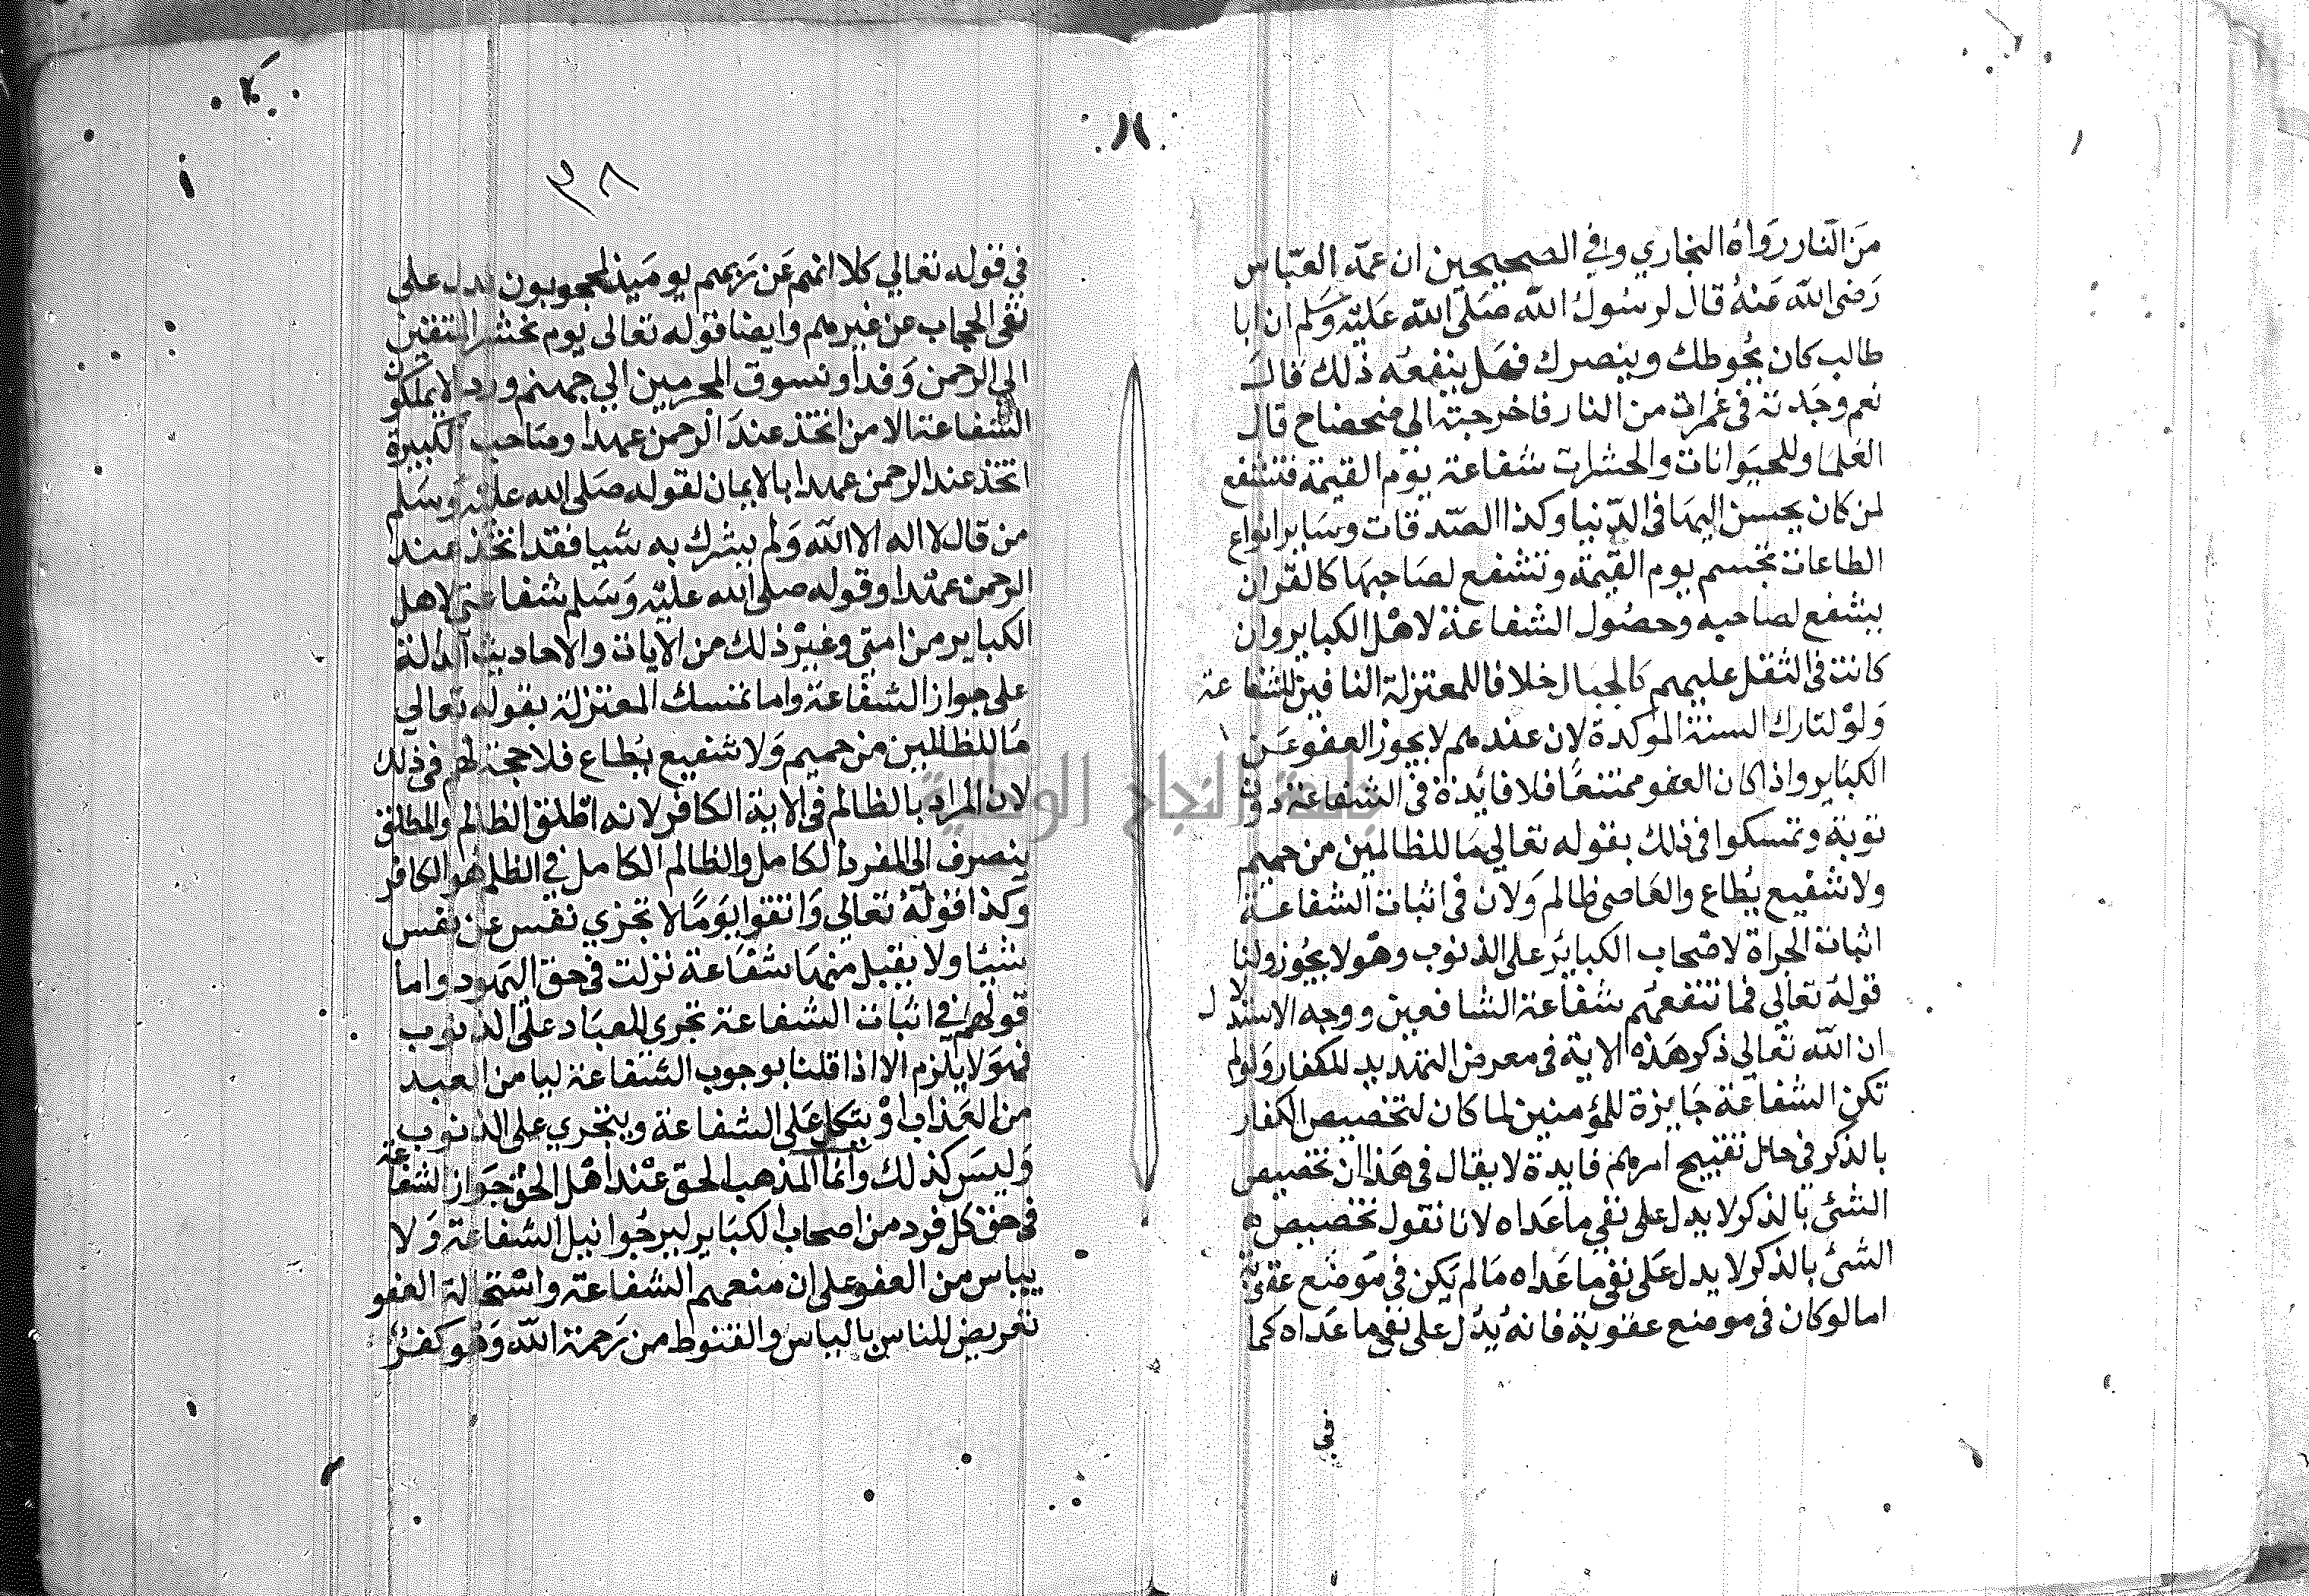 من النار رواه البخاري وفي الصحيحين ان عمه العباس
رضى الله عنه قال لرسول الله صلى الله عليه وسلم ان ابا
طالب كان يحوطك وينصرك فهل ينفعه ذلك قال
نعم وجدته فى غمرات من النار فاخرجته الى ضحضاح قال
العلما وللحيوانات والحشرات شفاعة يوم القيمة فتشفع
لمن كان يحسن اليها فى الدنيا وكذا الصدقات وساير انواع
الطاعات تجسم يوم القيمة وتشفع لصاحبها كالقران
يشفع لصاحبه وحصول الشفاعة لاهل الكباير وان
كانت فى الثقل عليهم كالجبال خلافا للمعتزلة النافين للشفاعة
ولو لتارك السنة الموكدة لان عندهم لا يجوز العفو عن
الكباير واذا كان العفو ممتنعا فلا فائدة فى الشفاعة دون
توبة وتمسكوا فى ذلك بقوله تعالي ما للظالمين من حميم
ولا شفيع يطاع والعاصى ظالم ولان فى اثبات الشفاعة
اثبات الجراة لاصحاب الكبائر على الذنوب وهو لا يجوز ولنا
قوله تعالى فما تنفعهم شفاعة الشافعين ووجه الاستدلال
ان الله تعالي ذكر هذه الاية فى معرض التهديد للكفار ولو لم
تكن الشفاعة جايزة للمؤمنين لما كان لتخصيص الكفار
بالذكر في حال تقبيح امرهم فايدة لا يقال فى هذا ان تخصيص
الشئ بالذكر لا يدل على نفي ما عداه لانا نقول تخصيص
الشئ بالذكر لا يدل على نفى ما عداه ما لم يكن في موضع عقوبة
اما لو كان فى موضع عقوبة فانه يدل على نفى ما عداه كما
في
٣٨
في قوله تعالي كلا انهم عن ربهم يوميذ لمحجوبون يدل على
نفى الحجاب عن غيرهم وايضا قوله تعالى يوم نحشر المتقين
الى الرحمن وفدا ونسوق المجرمين الي جهنم وردا لا يملكون
الشفاعة الا من اتخذ عند الرحمن عهدا وصاحب الكبيرة
اتخذ عند الرحمن عهدا بالايمان لقوله صلى الله عليه وسلم
من قال لا اله الا الله ولم يشرك به شيا فقد اتخذ عند
الرحمن عهدا وقوله صلى الله عليه وسلم شفاعتى لاهل
الكباير من امتي وغير ذلك من الايات والاحاديث الدالة
على جواز الشفاعة واما تمسك المعتزلة بقوله تعالي
ما للظالمين من حميم ولا شفيع يطاع فلا حجة لهم فى ذلك
لان المراد بالظالم فى الاية الكافر لانه اطلق الظالم والمطلق
ينصرف الى الفرد الكامل والظالم الكامل في الظلم هو الكافر
وكذا قوله تعالي واتقوا يوما لا تجزي نفس عن نفس
شيئا ولا يقبل منها شفاعة نزلت فى حق اليهود واما
قولهم في اثبات الشفاعة تجرى للعباد على الذنوب
فهو لا يلزم الا اذا قلنا بوجوب الشفاعة ليامن العبد
من العذاب او يتكل على الشفاعة ويتجري على الذنوب
وليس كذلك وانما المذهب الحق عند اهل الحق جواز الشفاعة
فى حق كل فرد من اصحاب الكباير ليرجوا نيل الشفاعة ولا
يياس من العفو على ان منعهم الشفاعة واستحالة العفو
تعريض للناس بالياس والقنوط من رحمة الله وهو كفر
جامعة النجاح الوطنية